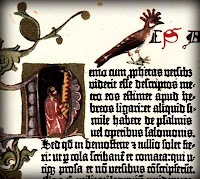 ES
Nemo cum prophetas versibus
viderit esse descriptos me
tro eos estimet apud he
breos ligari: et aliquid si
mile habere de psalmis
vel operibus salomonis.
Sed qd in demostene et tullio solet fie
ri: ut p cola scribant et comata: qui u
tiq; prosa et nō versibus cōscripserūt.